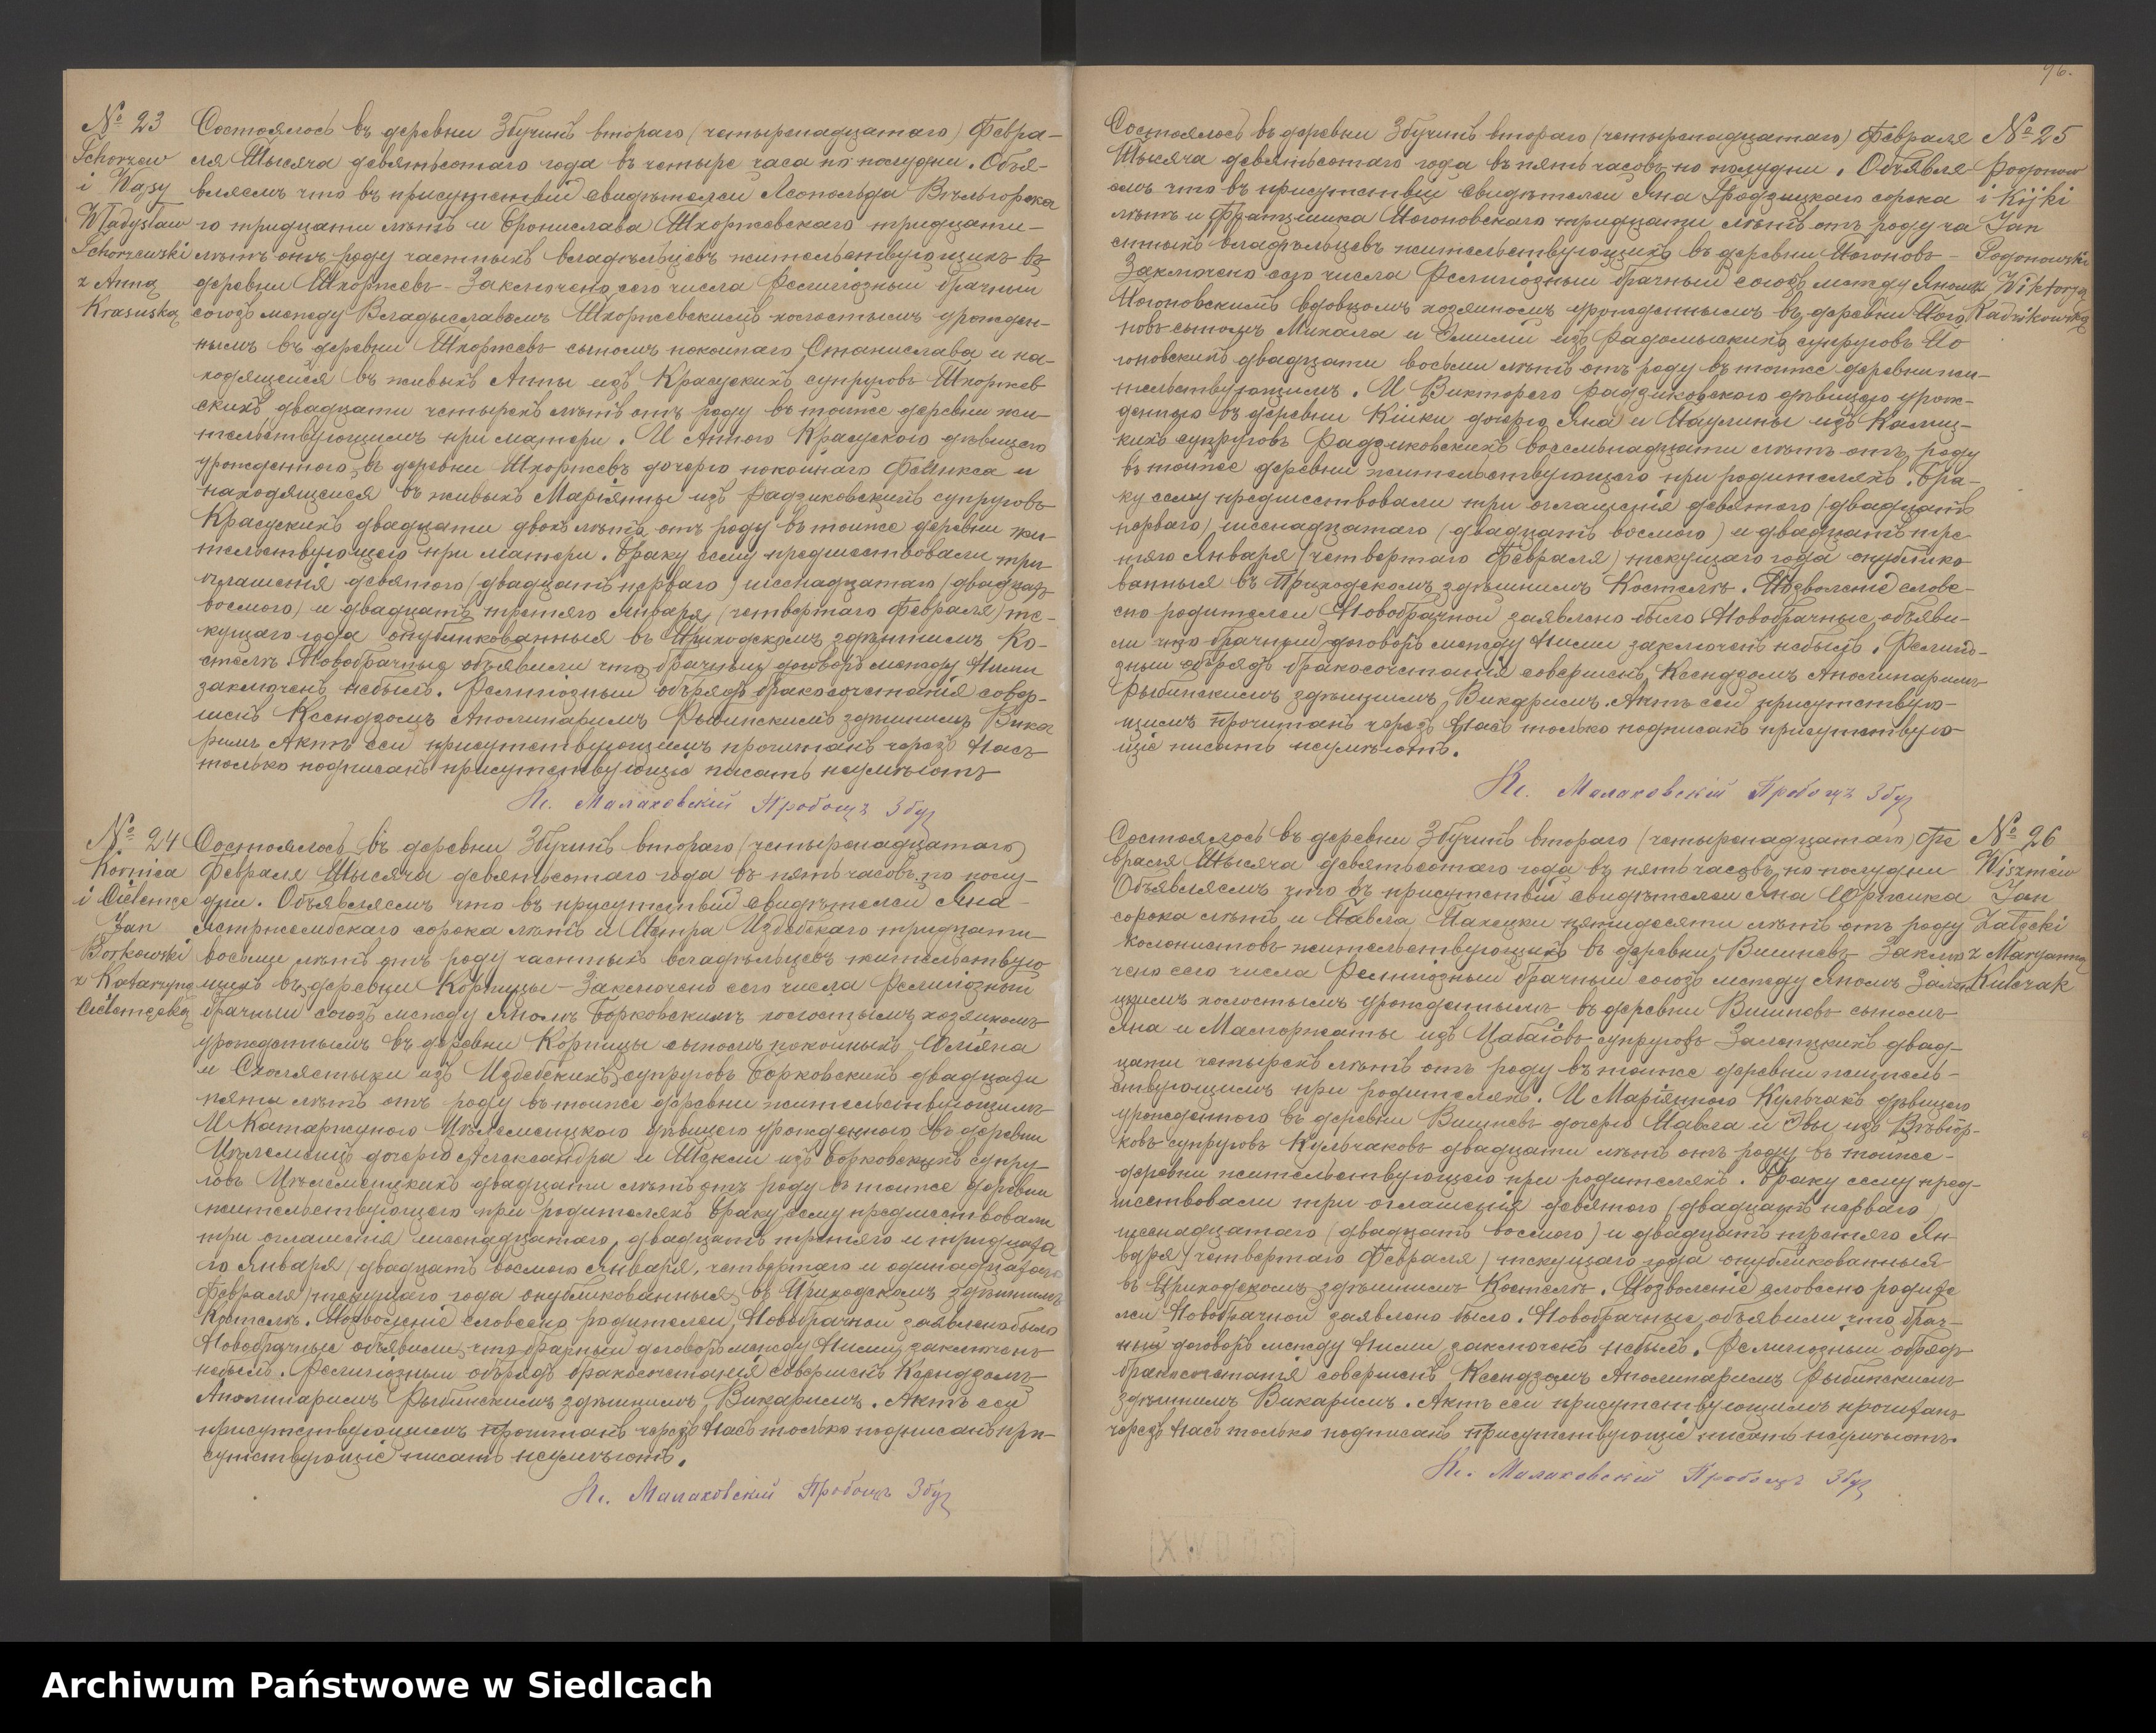 № 23
Tchorzew
i Wązy
Władysław
Tchorzewski
z Anną
Krasuską
Состоялось въ деревни Збучинъ втораго (четырнадцатаго) Февра-
ля Тысяча девятьсотаго года въ четыре часа по полудни. Объя-
вляемъ что въ присутствіи свидѣтелей Леопольда Вѣльгорска
го тридцати лѣтъ и Бронислава Тхоржевскаго тридцати-
лѣтъ отъ роду частныхъ владѣльцевъ жительствующихъ въ
деревни Тхоржевъ - Заключено сего числа Религіозный брачный
союзъ между Владыславомъ Тхоржевскимъ холостымъ урожден-
нымъ въ деревни Тхоржевъ сыномъ покойнаго Станислава и на-
ходящейся въ живыхъ Анны изъ Красускихъ супруговъ Тхоржев-
скихъ двадцати четырехъ лѣтъ отъ роду въ тойже деревни жи-
тельствующимъ при матери. И Анною Красускою дѣвицею
урожденною въ деревни Тхоржевъ дочерю покойнаго Феликса и
находящейся въ живыхъ Маріянны изъ Радзиковскихъ супруговъ
Красускихъ двадцати двохъ лѣтъ отъ роду въ тойже деревни жи-
тельствующею при матери. Браку сему предшествовали три
оглашенія девятого (двадцать перваго) шеснадцатаго (двадцать
восмого) и двадцать третяго Января (четвертаго Февраля) те-
кущаго года опубликованныя въ Приходскомъ здѣшнимъ Ко-
стелѣ. Новобрачные объявили что брачный договоръ между Ними
заключенъ небылъ. Религіозный обрядъ бракосочетанія совер-
шенъ Ксендзомъ Аполинаримъ Рыбинскимъ здѣшнимъ Вика
римъ Актъ сей присутствующимъ прочитанъ черезъ Насъ
только подписанъ присутствующіе писать неумѣютъ
Кс. Малаховскій Пробощъ Збуч
№ 24
Kornica
i Cielemęc
Jan
Borkowski
z Katarzyną
Cielemęcką
Состоялось въ деревни Збучинъ втораго (четырнадцатаго)
Февраля Тысяча девятьсотаго года въ пять часовъ по полу-
дни. Объявляемъ что въ присутствіи свидѣтелей Яна
Ястржембскаго сорока лѣтъ и Петра Избебскаго тридцати-
восьми лѣтъ отъ роду частныхъ владѣльцевъ жительствую
щихъ въ деревни Корницы - Заключено сего числа Религіозный
брачный союзъ между Яномъ Борковскимъ холостымъ хозяиномъ
урожденнымъ въ деревни Корницы сыномъ покойныхъ Юліяна
и Схолястыки изъ Избебскихъ супруговъ Борковскихъ двадцати
пяти лѣтъ отъ роду въ тойже деревни жительствующимъ
И Катаржиною Цѣлемецкою дѣвицею урожденною въ деревни
Цѣлемецъ дочерю Александра и Теклы изъ Борковскихъ супру-
говъ Цѣлемецкихъ двадцати лѣтъ отъ роду въ тойже деревни
жительствующею при родителяхъ Браку сему предшествовали
три оглашенія шеснадцатаго, двадцать третяго и тридцата
го Января (двадцать восмого Января, четвертаго и одинадцатаго
Февраля) текущаго года опубликованныя въ Приходскомъ здѣшнимъ
Костелѣ. Позволеніе словесно родителей Новобрачной заявлено было
Новобрачные объявили что брачный договоръ между Ними заключенъ
небылъ. Религіозный обрядъ бракосочетанія совершенъ Ксендзомъ
Аполинаримъ Рыбинскимъ здѣшнимъ Викаримъ. Актъ сей
присутствующимъ прочитанъ черезъ Насъ только подписанъ при-
сутствующіе писать неумѣютъ.
Кс. Малаховскій Пробощъ Збуч
96.
№ 25
Pogonow
i Kijki
Jan
Pogonowski
z Wiktoryą
Radzikowską
Состоялось въ деревни Збучинъ втораго (четырнадцатаго) Февраля
Тысяча девятьсотаго года въ пять часовъ по полудни. Объявля-
емъ что въ присутствіи свидѣтелей Яна Гродзицкаго сорока
лѣтъ и Францишка Погоновскаго тридцати лѣтъ отъ роду ча
стныхъ владѣльцевъ жительствующихъ въ деревни Погоновъ -
Заключено сего числа Религіозный брачный союзъ между Яномъ
Погоновскимъ вдовцомъ хозяиномъ урожденнымъ въ деревни Пого
новъ сыномъ Михала и Эмиліи изъ Радомыскихъ супруговъ По
гоновскихъ двадцати восьми лѣтъ отъ роду въ тойже деревни жи-
тельствующимъ. И Викторею Радзиковскою дѣвицею урож-
денною въ деревни Кійки дочерю Яна и Паулины изъ Калиц-
кихъ супруговъ Радзиковскихъ восемьнадцати лѣтъ отъ роду
въ тойже деревни жительствующею при родителяхъ. Бра-
ку сему предшествовали три оглашенія девятого (двадцать
перваго) шеснадцатаго (двадцать восмого) и двадцать тре
тяго Января (четвертаго Февраля) текущаго года опублико
ванныя въ Приходскомъ здѣшнимъ Костелѣ. Позволеніе слове-
сно родителей Новобрачной заявлено было Новобрачные объяви-
ли что брачный договоръ между Ними заключенъ небылъ. Религіо-
зный обрядъ бракосочетанія совершенъ Ксендзомъ Аполинаримъ
Рыбинскимъ здѣшнимъ Викаримъ. Актъ сей присутствую-
щимъ прочитанъ черезъ Насъ только подписанъ присутствую-
щіе писать неумѣютъ.
Кс. Малаховскій Пробощъ Збуч
№ 26
Wiszniew
Jan
Załęcki
z Maryanną
Kulczak
Состоялось въ деревни Збучинъ втораго (четырнадцатаго) Фе
враля Тысяча девятьсотаго года въ пять часовъ по полудни
Объявляемъ что въ присутствіи свидѣтелей Яна Юржика
сорока лѣтъ и Павла Пахецки пятидесяти лѣтъ отъ роду
колонистовъ жительствующихъ въ деревни Вишневъ - Заклю
чено сего числа Религіозный брачный союзъ между Яномъ Залэн
цкимъ холостымъ урожденнымъ въ деревни Вишневъ сыномъ
Яна и Малгоржаты изъ Цабаювъ супруговъ Залэнцкихъ двад-
цати четырехъ лѣтъ отъ роду въ тойже деревни житель-
ствующимъ при родителяхъ. И Маріянною Кульчакъ дѣвицею
урожденною въ деревни Вишневъ дочерю Павла и Эвы изъ Вѣвіор-
ковъ супруговъ Кульчаковъ двадцати лѣтъ отъ роду въ тойже
деревни жительствующею при родителяхъ. Браку сему пред-
шествовали три оглашенія девятого (двадцать перваго
шеснадцатаго (двадцать восмого) и двадцать третяго Ян-
варя (четвертаго Февраля) текущаго года опубликованныя
въ Приходскомъ здѣшнимъ Костелѣ. Позволеніе словесно родите
лей Новобрачной заявлено было. Новобрачные объявили что брач-
ный договоръ между Ними заключенъ небылъ. Религіозный обрядъ
бракосочетанія совершенъ Ксендзомъ Аполинаримъ Рыбинскимъ
здѣшнимъ Викаримъ. Актъ сей присутствующимъ прочитанъ
черезъ Насъ только подписанъ присутствующіе писать неумѣютъ.
Кс. Малаховскій Пробощъ Збуч
Archiwum Państwowe w Siedlcach